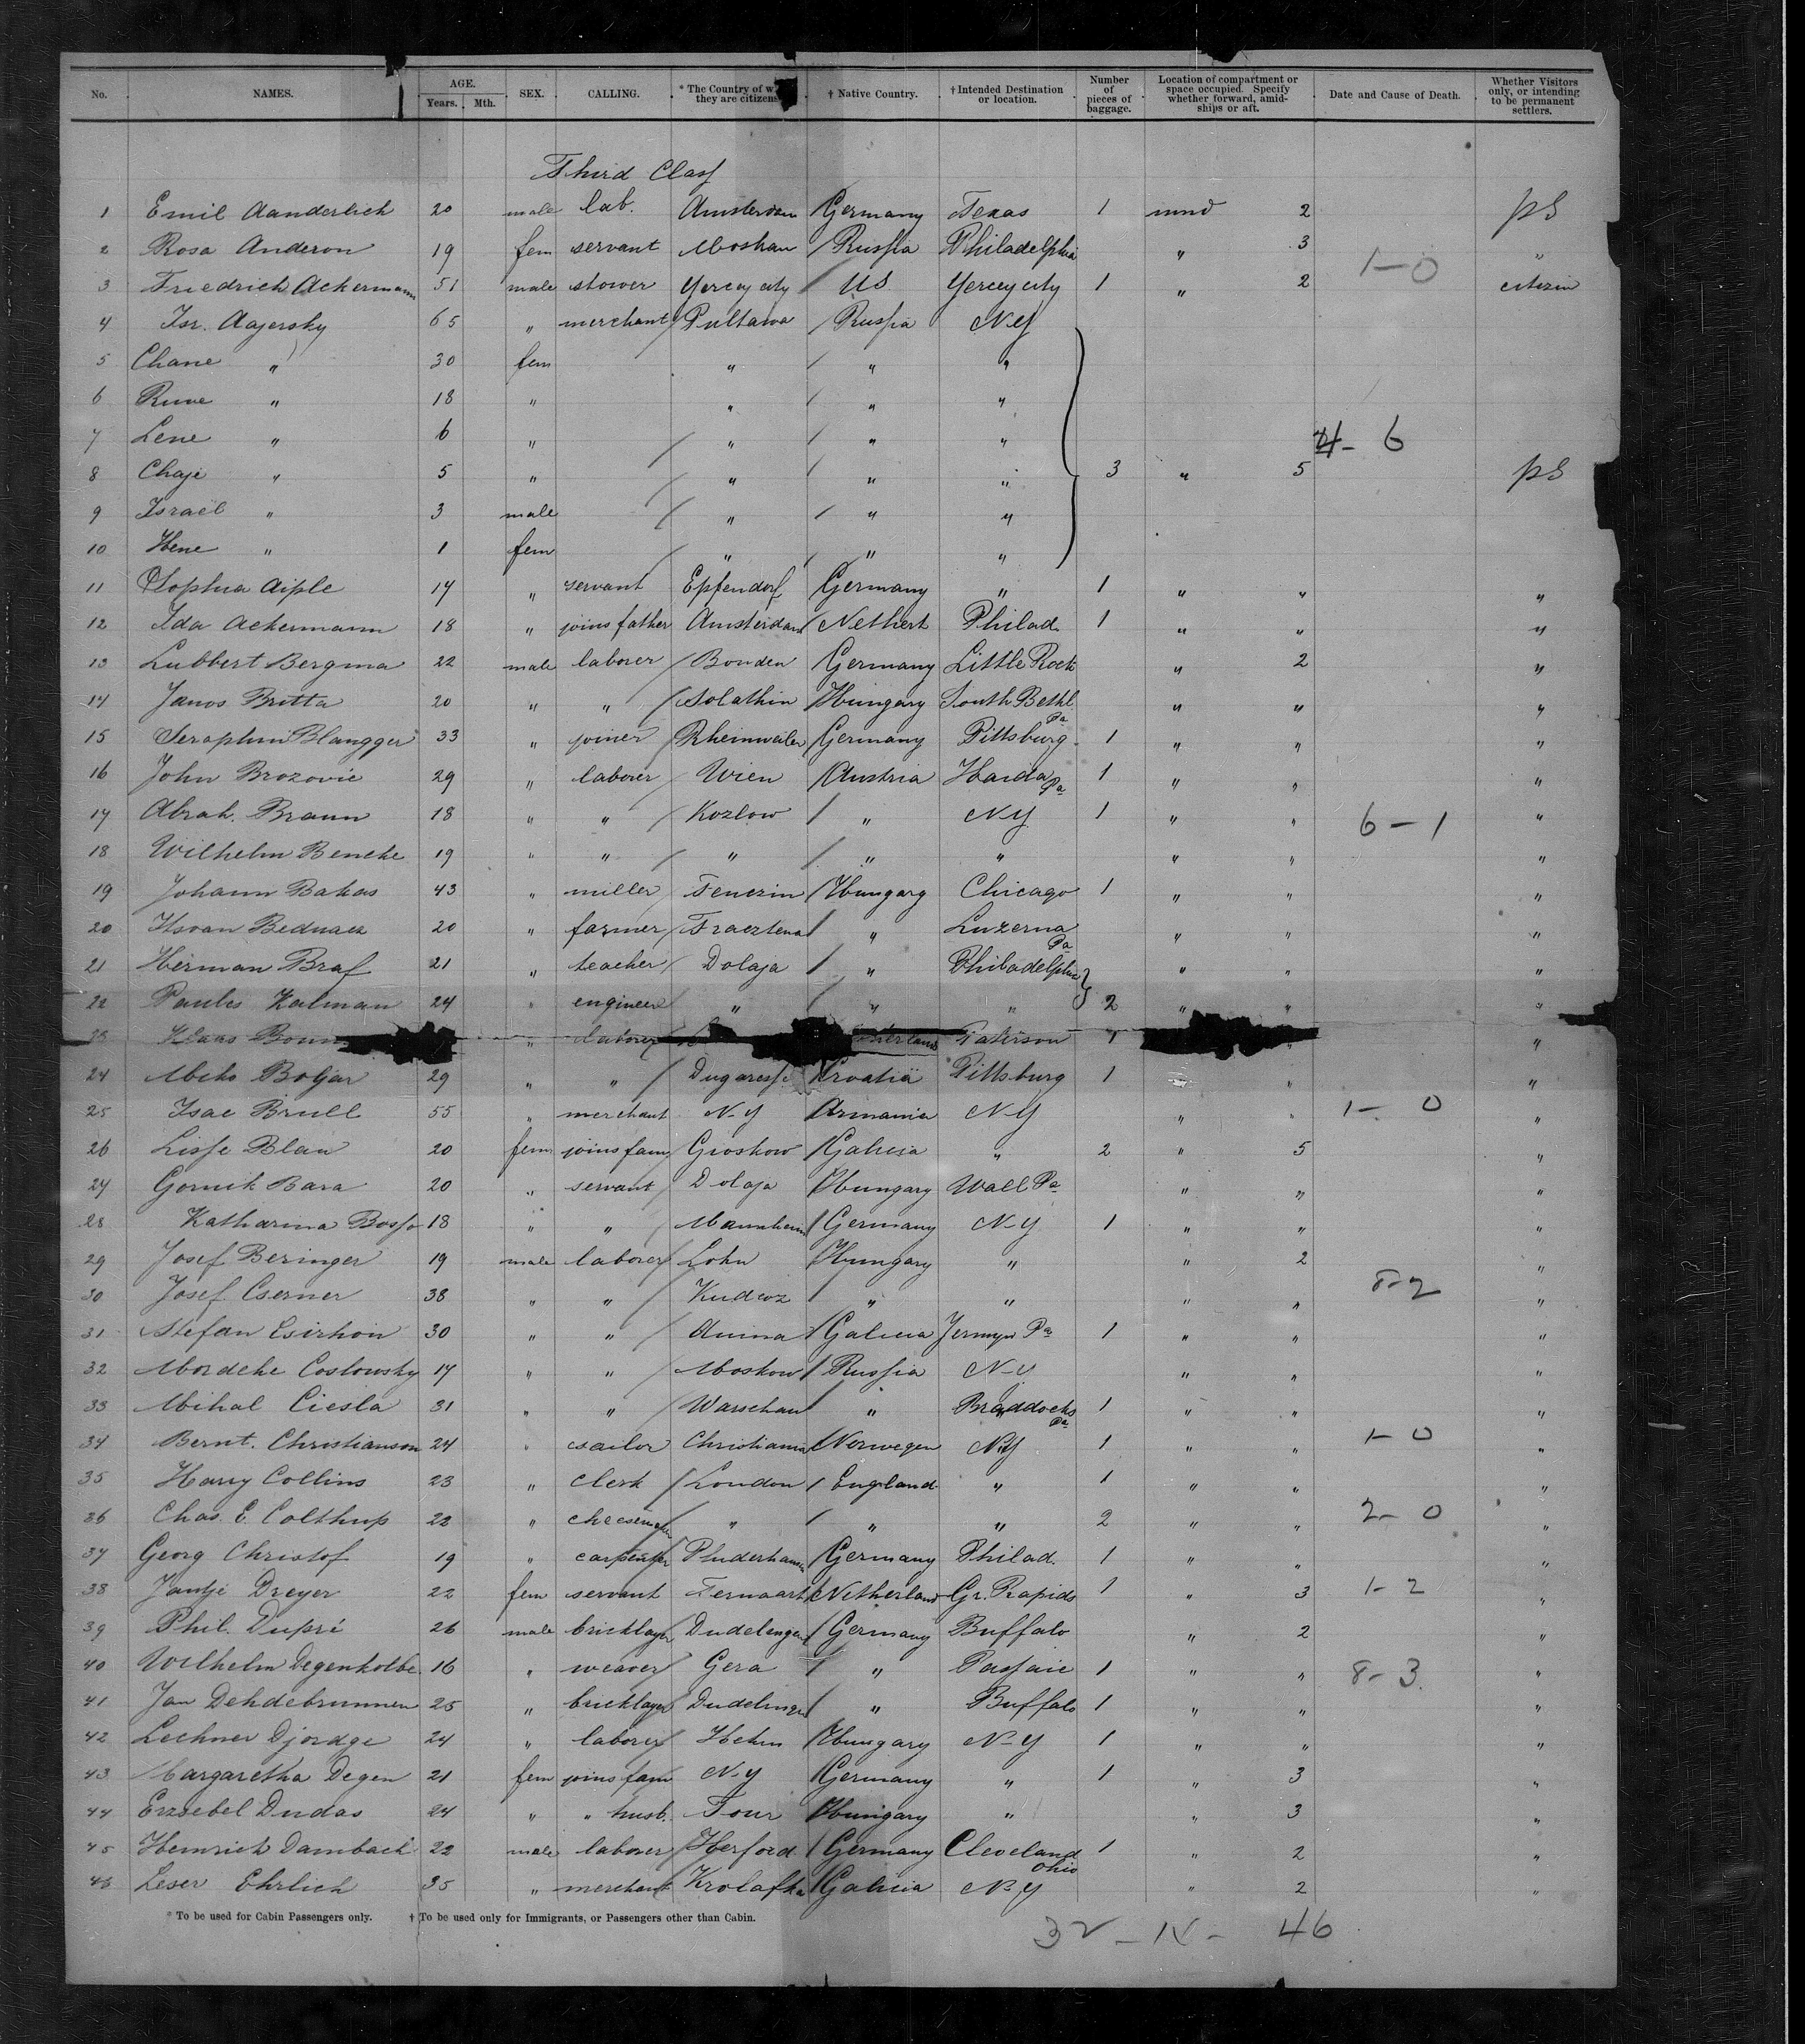 No. NAMES. AGE. Years. Mth. SEX. CALLING. * The Country of w they are citizens † Native Country. † Intended Destination or location. Number of pieces of baggage. Location of compartment or space occupied. Specify whether forward, amidships or aft. Date and Cause of Death. Whether Visitors only, or intending to be permanent settlers.
Third Class
1 Emil Aanderlich 20 male lab. Amsterdam Germany Texas 1 2 pS
2 Rosa Anderon 19 fem servant Moskau Russia Philadelphia " 3 "
1-0
3 Friedrich Ackermann 51 male stower Yercey city US Yercey city 1 " 2 citizin
4 Isr. Aajersky 65 " merchant Pultawa Russia N-Y
5 Chane " 30 fem " " "
6 Ruwe " 18 " " " "
7 Lene " 6 " " " " 6
8 Chaje " 5 " " " " 3 " 5 pS
9 Israel " 3 male " " "
10 Hene " 1 fem " " "
11 Sophia Aiple 17 " servant Epfendorf Germany " 1 " " "
12 Ida Ackermann 18 " joins father Amsterdam Netherl Philad. 1 " " "
13 Lubbert Bergma 22 male laborer Bonden Germany Little Rock " 2 "
14 Janos Britta 20 " " Solathin Hungary South Bethl Pa " " "
15 Seraphin Blangger 33 " joiner Rheinweiler Germany Pittsburg 1 " " "
16 John Brozovic 29 " laborer Wien Austria Pa 1 " " "
17 Abrah. Braun 18 " " Kozlow " N-Y 1 " " 6-1 "
18 Wilhelm Beneke 19 " " " " " " " "
19 Johann Bakas 43 " miller Tenczin Hungary Chicago 1 " " "
20 Istvan Bednarz 20 " farmer " Luzerna Pa " " "
21 Herman Braf 21 " teacher Dolaja " Philadelphia " " "
22 Paules Kalman 24 " engineer " " " 2 " " "
23 Klaas " laborer Paterson 1 " "
24 Miko Boljar 29 " " Dugaresse Croatia Pittsburg 1 " "
25 Isac Brull 55 " merchant N-Y Armania N-Y " " 1-0 "
26 Lisse Blau 20 fem joins fam Groskow Galicia " 2 " 5 "
27 Gornik Bara 20 " servant Dolaja Hungary Wall Pa " " "
28 Katharina Bosso 18 " " Mannheim Germany N-Y 1 " " "
29 Josef Beringer 19 male laborer Lohn Hungary " " 2 "
8-2
30 Josef Cserner 38 " " " " " " "
31 Stefan Csizhon 30 " " Anina Galicia Jermyn Pa 1 " " "
32 Mordche Coslowsky 17 " " Moskow Russia N-Y " " "
33 Mihal Ciesla 31 " " Warschau " Braddocks Pa 1 " " "
34 Bernt. Christianson 24 " sailor Christiania Norwegen N-Y 1 " " 1-0 "
35 Harry Collins 23 " clerk London England " 1 " " "
36 Chas. E. Colthup 22 " cheesemaker " " " 2 " " 2-0 "
37 Georg Christof 19 " carpenter Pluderhausen Germany Philad. 1 " " "
38 Jantje Dreyer 22 fem servant Fernaart Netherland Gr. Rapids 1 " 3 1-2 "
39 Phil. Dupré 26 male bricklayer Dudelingen Germany Buffalo " 2 "
40 Wilhelm Degenkolbe 16 " weaver Gera " Passaic 1 " " 8-3. "
41 Jan Dehdebrunnen 25 " bricklayer Dudelingen " Buffalo 1 " " "
42 Lechner Djordge 24 " laborer Hehm Hungary N-Y 1 " " "
43 Margaretha Degen 21 fem joins fam N-Y Germany " 1 " 3 "
44 Erzsebel Dudas 24 " " husb. Tour Hungary " " 3 "
45 Heinrich Dambach 22 male laborer Herford Germany Cleveland Ohio 1 " 2 "
46 Leser Ehrlich 35 " merchant Krolafka Galicia N-Y " 2 "
* To be used for Cabin Passengers only. † To be used only for Immigrants, or Passengers other than Cabin.
46